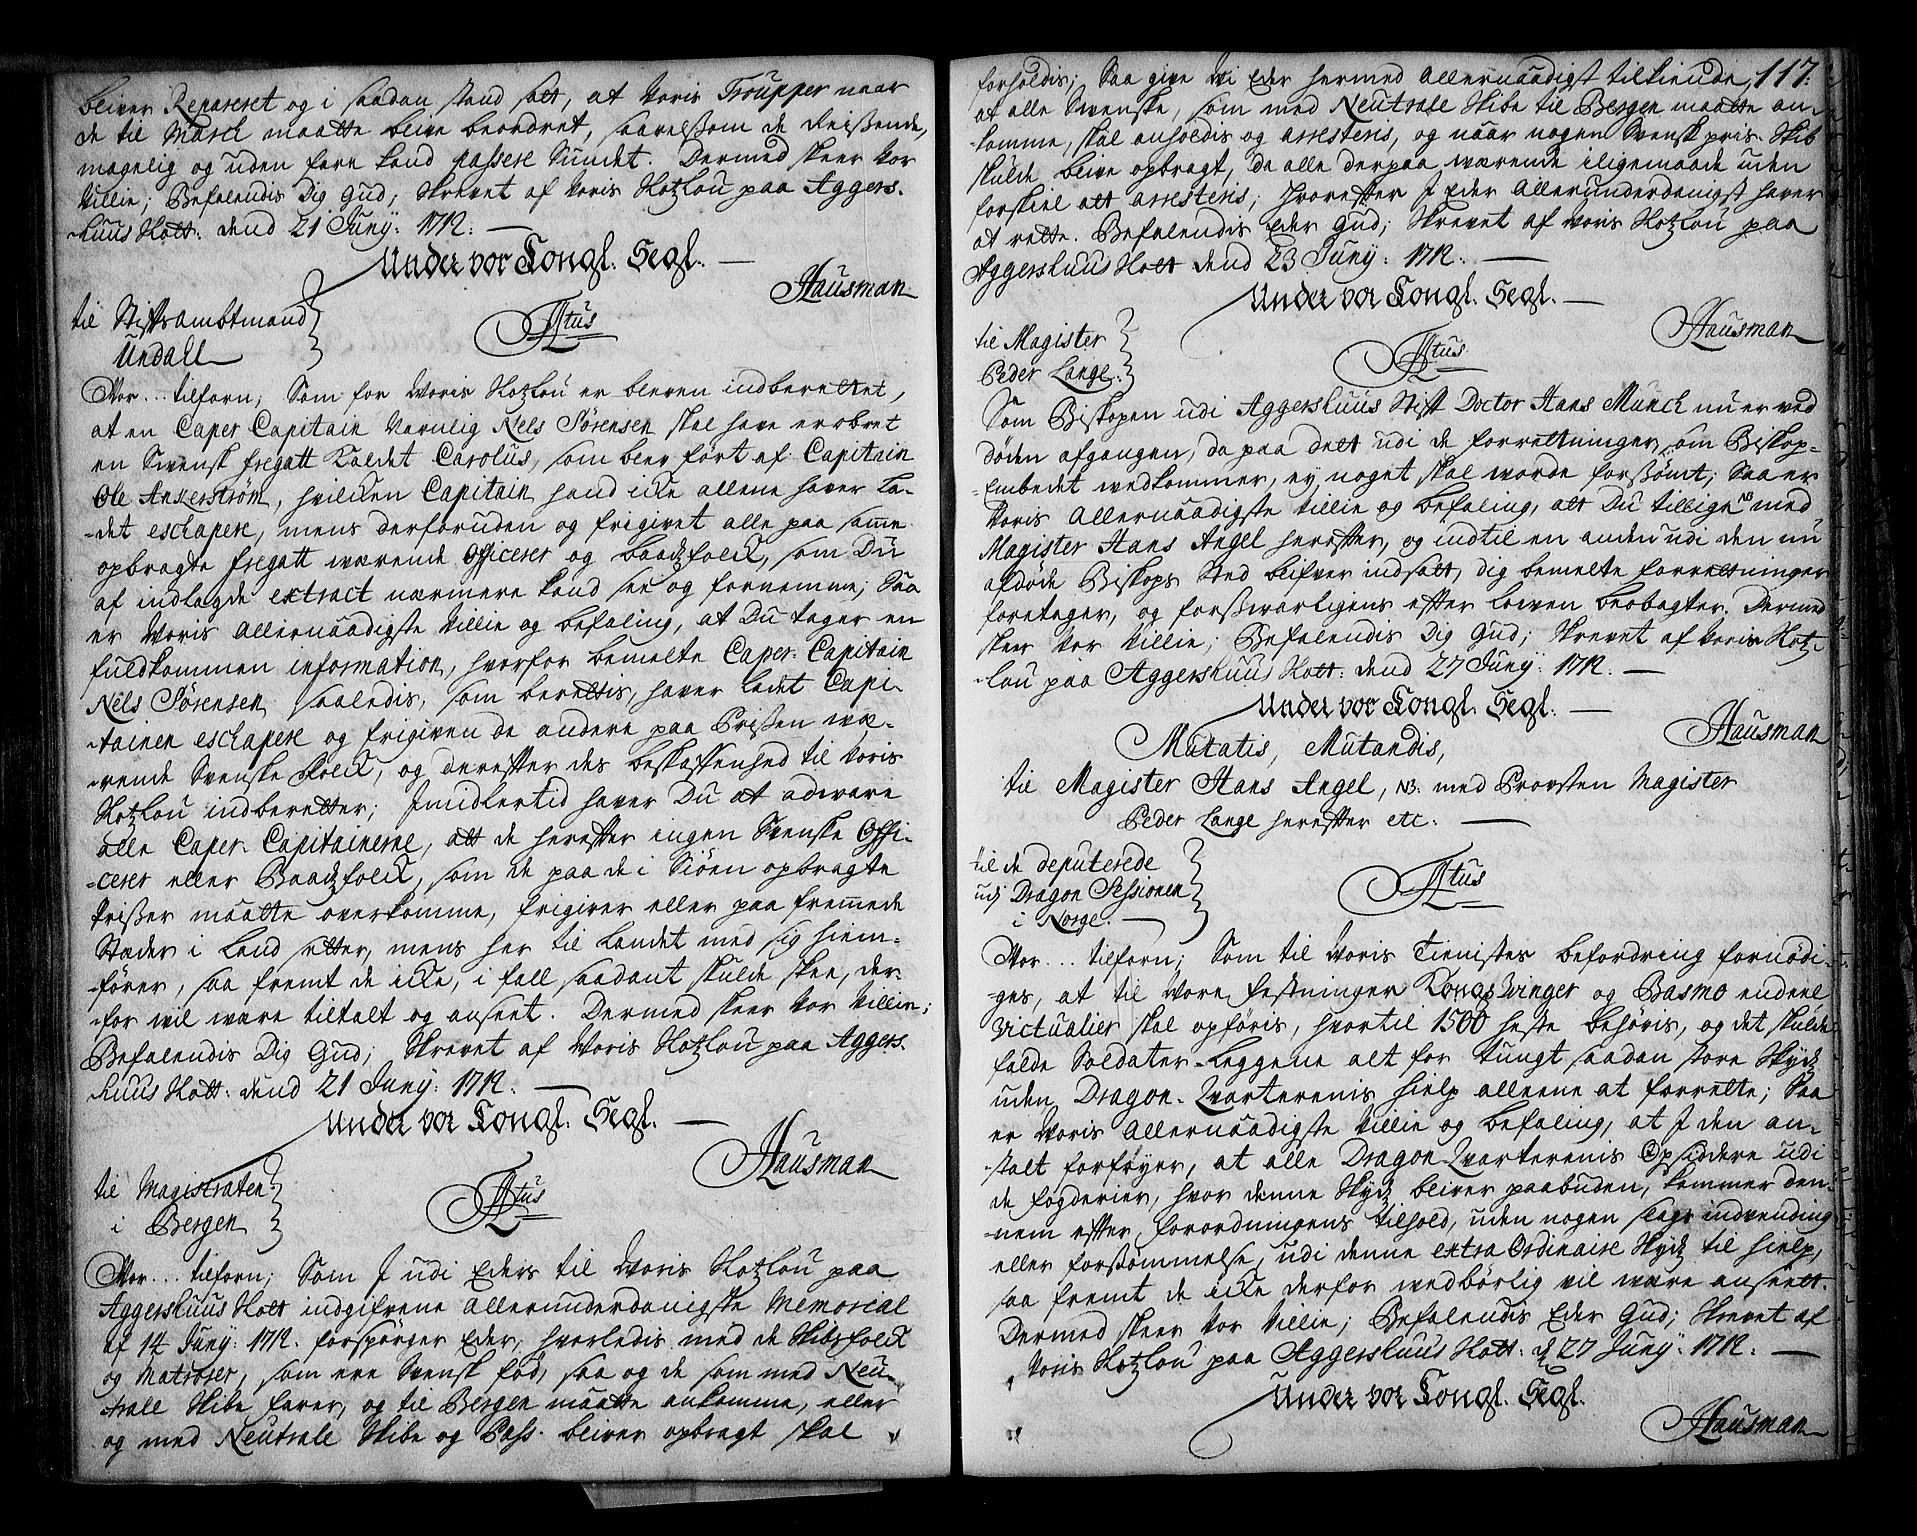 bliver Repareret og i saadan stand satt, at Voris Troupper naar
de til March maatte blive beordret, saavelsom de Reisende,
magelig og uden fare kand passere Sundet. Dermed skeer Vor
Villie; Befalendis Dig Gud; Skrevet af Voris Slotzlou paa Aggers-
huus Slott: dend 21 Junÿ: 1712:
Under vor Kongl. Segl.
Hausman
til Stiftsambtmand
Undall
Ftus
Vor... tilforn; Som for Voris Slotzlou er bleven indberettet,
at en Caper Capitain Navnlig Nels Sörensen skal have erobret
en Swensk fregatt kaldet Carolus, som blev fört af Capitain
Ole Ankerström, hvilcken Capitain hand icke allene haver la-
-det eschapere, mens derforuden og frigivet alle paa samme
opbragte fregatt wærende Officerer og Baadzfolck, som Du
af indlagde extract nærmere kand see og fornemme; Saa
er Voris Allernaadigste Villie og befaling, at Du tager en
fuldkommen information, hvorfor bemelte Caper-Capitain
Nels Sörensen saaledis, som berettis, haver ladet Capi-
-tainen eschapere og frigiven de andere paa Prissen væ-
-rende Svenske Folck, og derefter des beskaffenhed til Voris
Slotzlou indberetter; Imidlertid haver Du at advare
alle Caper-Capitainerne, att de herefter ingen Svenske Offi-
-cerer eller Baadzfolck, som de paa de i Siöen opbragte
Prisser maatte overkomme, frigiver eller paa fremmede
Stæder i Land sætter, mens her til Landet med sig hiem-
-förer, saa fremt de icke, i fall saadant skulde skee, der-
-for vil være tiltalt og anseet. Dermed skeer Vor Villie;
Befalendis Dig Gud; Skrevet af Voris Slotzlou paa Aggers-
huus Slott: dend 21 Junÿ: 1712.
Under vor Kongl. Segl.
Hausman
til Magistraten
i Bergen
Ftus
Vor... tilforn; Som I udi Eders til Voris Slotzlou paa
Aggershuus Slott indgifvene allerunderdanigste Memorial
af 14 Junÿ: 1712. forspörger Eder, hvorledis med de Skibsfolck
og Matroser, som ere Svensk föd, saa og de som med Neu-
trale Skibe farer, og til Bergen maatte ankomme, eller
og med Neutrale Skibe og Pass. bliver opbragt skal
117:
forholdis; Saa give Vi Eder hermed Allernaadigst tilkiende,
at alle Swenske, som med Neutrale Skibe til Bergen maatte an-
-komme, skal anholdis og arresteris, og naar nogen Svensk pris-Skib
skulde blive opbragt, da alle derpaa wærende iligemaade uden
forskiel att arresteris; hvorefter I Eder Allerunderdanigst haver
at rette. Befalendis Eder Gud; Skrevet af Voris Slotzlou paa
Aggershuus Slott dend 23 Junÿ: 1712.
Under vor Kongl. Segl.
Hausman
til Magister
Peder Lange.
Ftus
Som Biskopen udi Aggershuus Stift Doctor Hans Munck nu er ved
döden afgangen, da paa dett udi de forretninger, som Biskop-
-Embedet wedkommer, ey noget skal worde forsömt; Saa er
Voris Allernaadigste Villie og befaling, att Du tilligne med
Magister Hans Angel herefter, og indtil en anden udi den nu
afdöde Biskops Sted blifver indsatt, dig bemelte forretninger
foretager, og forsvarligens efter Loven beobagter. Dermed
skeer Vor Villie; Befalendis Dig Gud; Skrevet af Voris Slotz-
-lou paa Aggershuus Slott: dend 27 Junÿ: 1712.
Under vor Kongl. Segl.
Hausman
Mutatis, Mutandis,
til Magister Hans Angel, NB. med Provsten Magister
Peder Lange herefter etc.
til de deputerede
udj Dragon Sessionen
i Norge.
Ftus
Vor... tilforn; Som til Voris Tienistes befordring fornödi-
-ges, at til Vore festninger Kongswinger og Basmo endeel
victualier skal opföris, hvortil 1500 heste behöris, og det skulde
falde Soldater-Leggene alt for tungt saadan store Skydz
uden Dragon-Qvarterenis hielp alleene at forrette; Saa
er Voris Allernaadigste Villie og befaling, at I den an-
-stalt forföyer, at alle Dragon Qvarterenis Opsiddere udi
de fogderier, hvor denne Skydz bliver paabuden, kommer den-
nem efter forordningens tilhold, uden nogen slags indvending
eller forsömmelse, udi denne extra Ordinaire Skydz til hielp,
saa fremt de icke derfor wedbörlig vil være anseett.
Dermed skeer Vor Villie; Befalendis Eder Gud; Skrevet af
Voris Slotzlou paa Aggershuus Slott: d 27 Junÿ: 1712.
Under vor Kongl. Segl.
Hausman